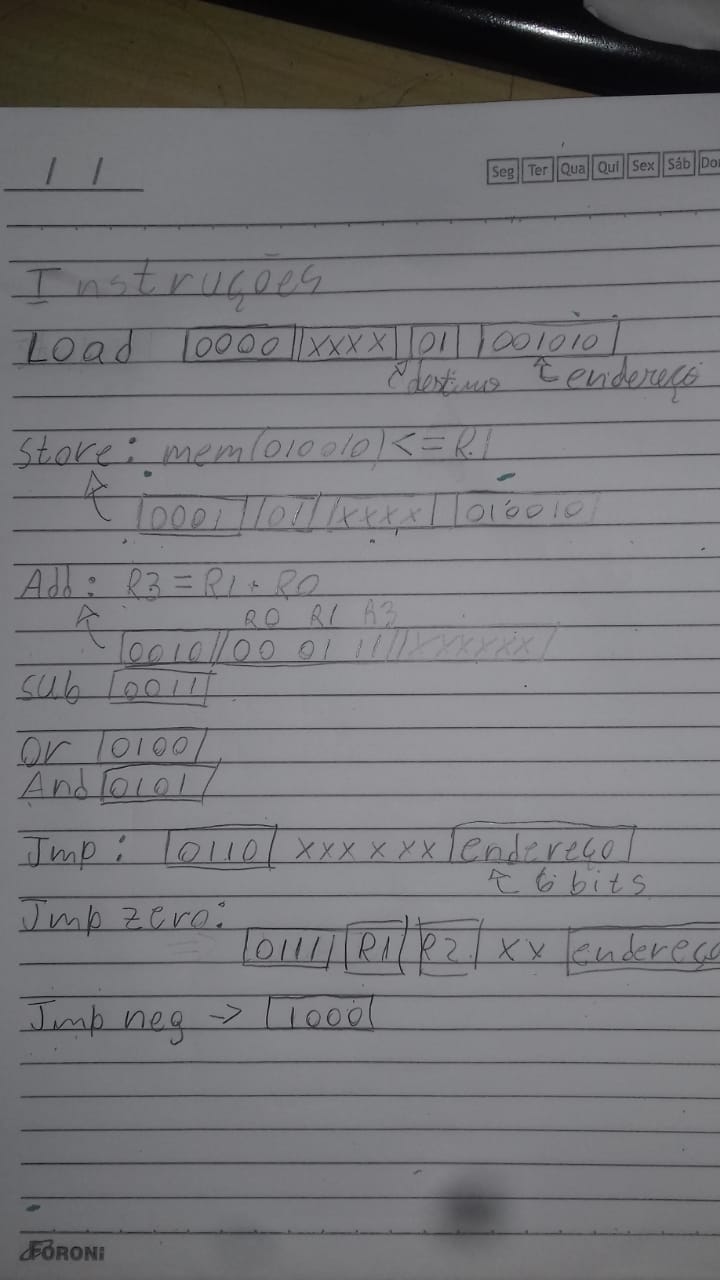 / /
Seg Ter Qua Qui Sex Sáb Do
Instruções
Load 0000 XXXX 01 001010
destino endereço
Store: mem(010010) <= R1
0001 01 XXXX 010010
Add: R3 = R1 + R0
R0 R1 R3
0010 00 01 11 XXXXXX
sub 0011
Or 0100
And 0101
Jmp: 0110 XXXXXX endereço
6 bits
Jmp zero:
0111 R1 R2 XX endereço
Jmp neg -> 1000
FORONI